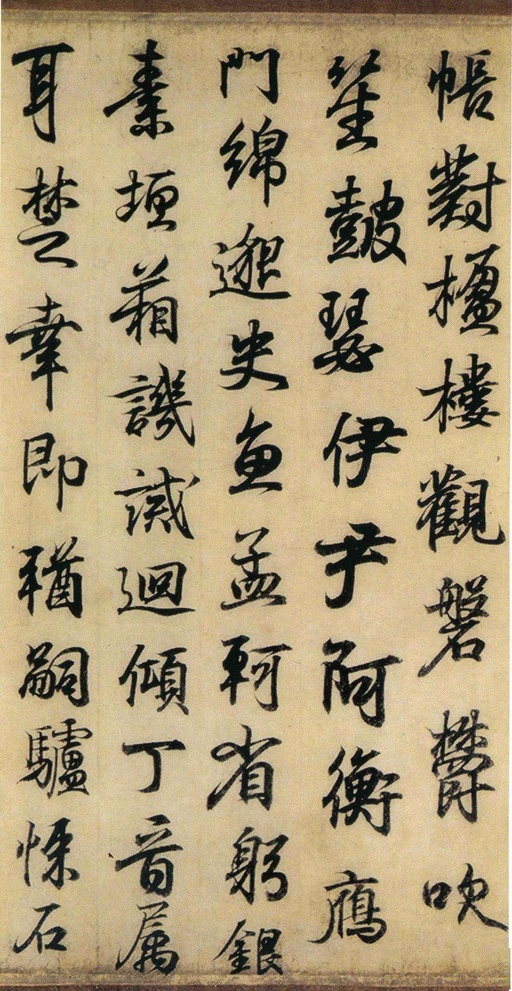 帳對楹樓觀磐欝吹
笙皷瑟伊尹阿衡鴈
門綿邈史魚孟軻省躬銀
素垣葙譏誡迴傾丁音属
耳楚幸即輶嗣驢悚石